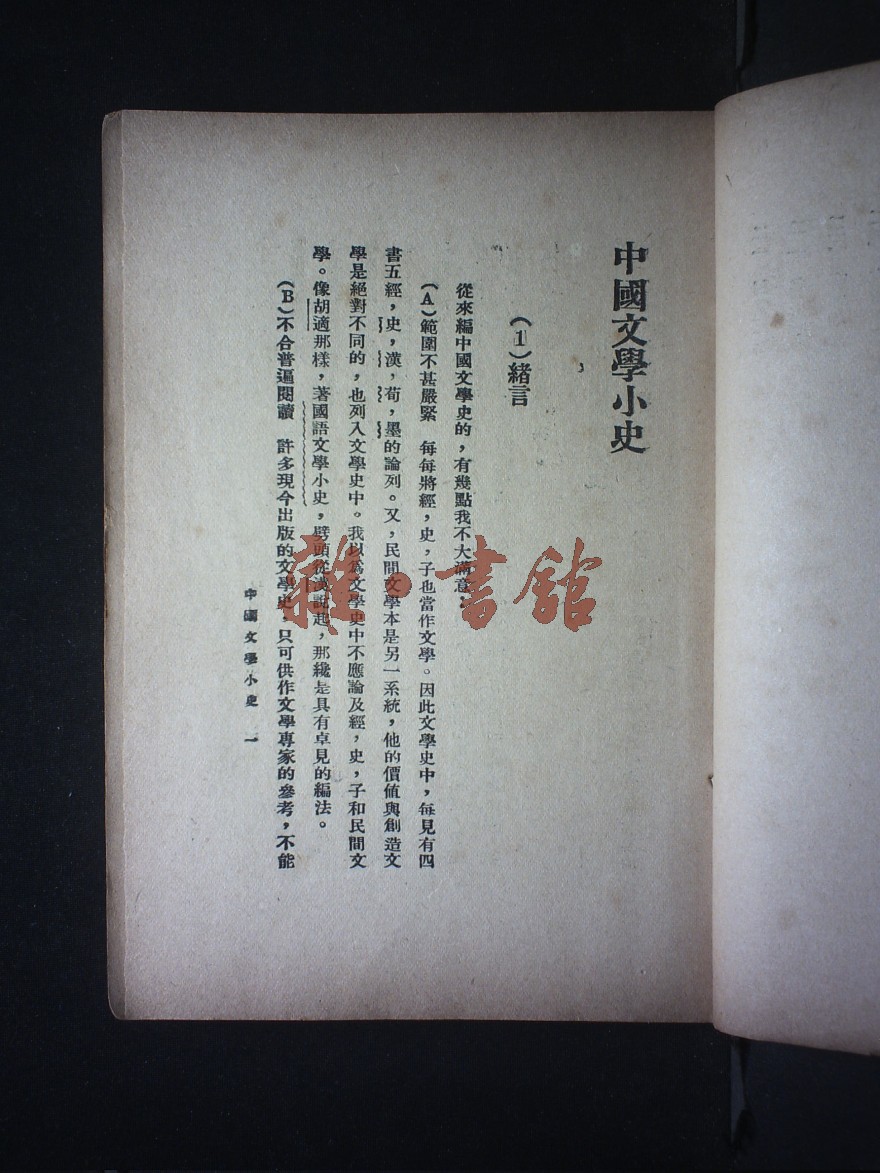 中國文學小史
(1)緒言
從來編中國文學史的，有幾點我不大滿意：
(A)範圍不甚嚴緊　每每將經，史，子也當作文學。因此文學史中，每見有四
書五經，史，漢，荀，墨的論列。又，民間文學本是另一系統，他的價值與創造文
學是絕對不同的，也列入文學史中。我以爲文學史中不應論及經，史，子和民間文
學。像胡適那樣，著國語文學小史，劈頭從漢說起，那纔是具有卓見的編法。
(B)不合普遍閱讀　許多現今出版的文學史，只可供作文學專家的參考，不能
中國文學小史　一
雜·書館